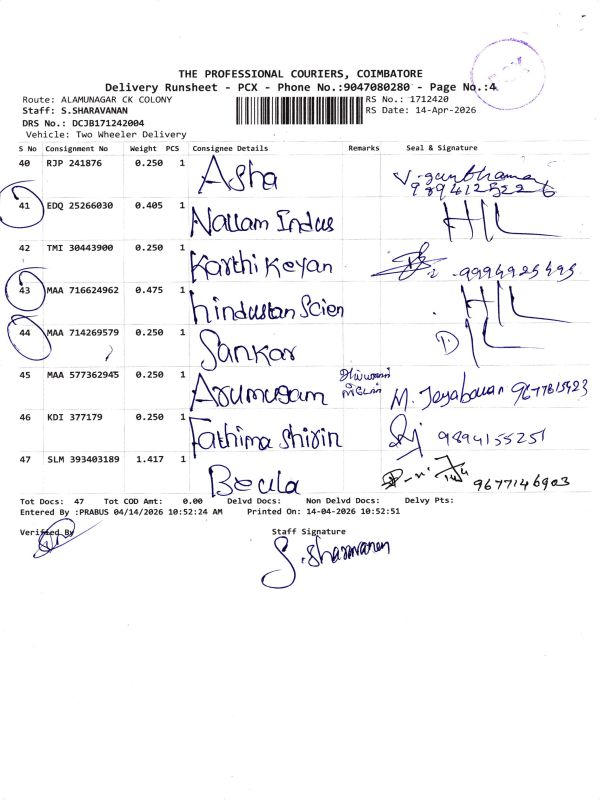 THE PROFESSIONAL COURIERS, COIMBATORE
Delivery Runsheet - PCX - Phone No.:9047080280 - Page No.:4
Route: ALAMUNAGAR CK COLONY
RS No.: 1712420
Staff: S.SHARAVANAN
RS Date: 14-Apr-2026
DRS No.: DCJB171242004
Vehicle: Two Wheeler Delivery
S No Consignment No Weight PCS Consignee Details Remarks Seal & Signature
40 RJP 241876 0.250 1 Asha
41 EDQ 25266030 0.405 1 Nallam Indus HIL
42 TMI 30443900 0.250 1 Karthikeyan 9994925495
43 MAA 716624962 0.475 1 hindustan Scien HIL
44 MAA 714269579 0.250 1 Sankar
45 MAA 577362945 0.250 1 Arumugam M.
46 KDI 377179 0.250 1 Fathima Shirin 9894155251
47 SLM 393403189 1.417 1 Beula 9677146903
Tot Docs: 47 Tot COD Amt: 0.00 Delvd Docs: Non Delvd Docs: Delvy Pts:
Entered By :PRABUS 04/14/2026 10:52:24 AM Printed On: 14-04-2026 10:52:51
Verified By Staff Signature
S. Sharavanan